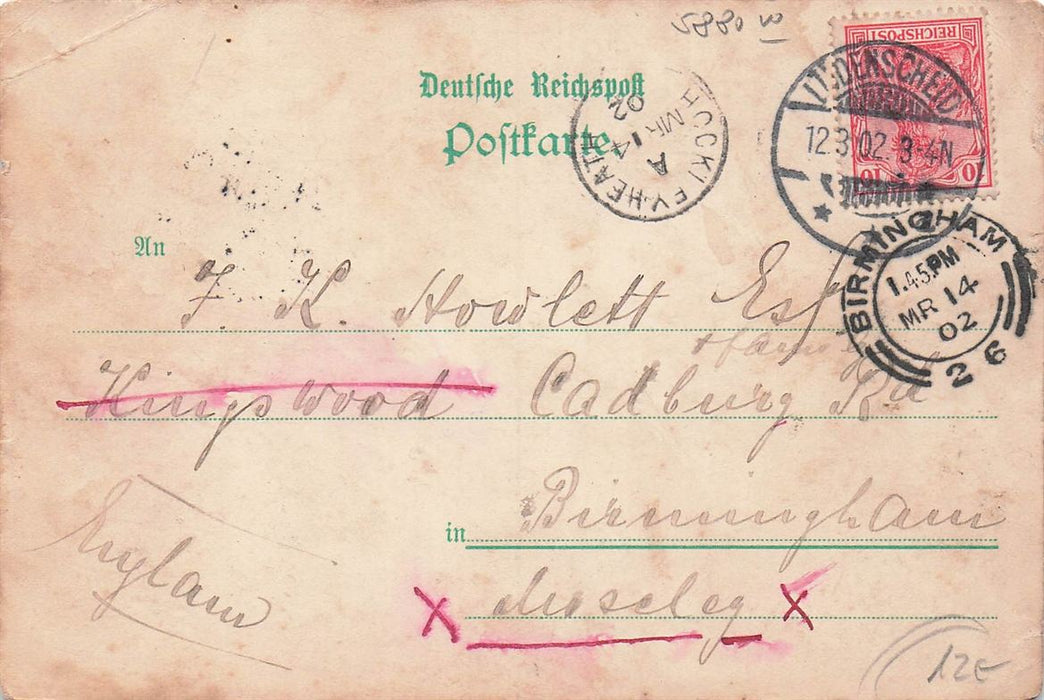 5880
REICHSPOST
10 10
LÜDENSCHEID
12.3.02. 3-4N
Deutsche Reichspost
Postkarte.
HOCKLEY-HEATH
A
MR 14
02
BIRMINGHAM
1.45PM
MR 14
02
26
An
F. K. Howlett Esq
Kingswood Cadburg Rd
in Birmingham
England
X Moseley X
12E